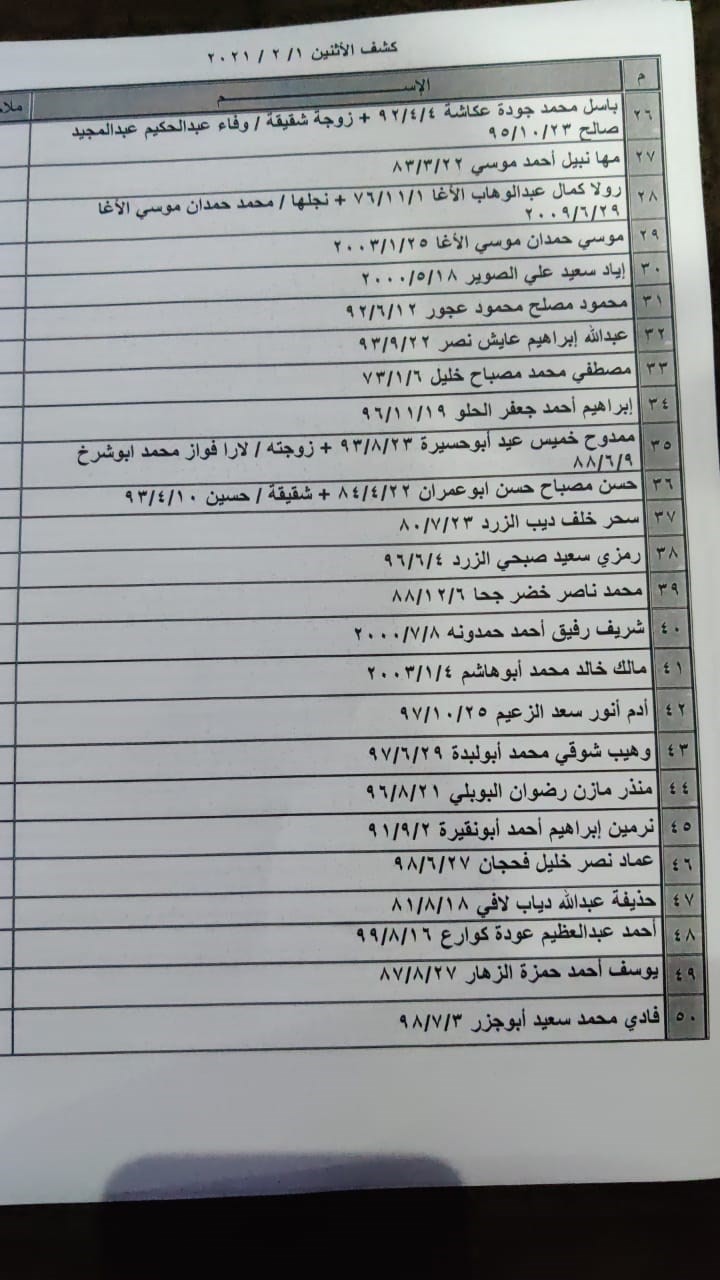 كشف الأثنين ٢٠٢١ / ٢ /١
م الإســـــــــم ملا
٢٦ باسل محمد جودة عكاشة ٩٢/٤/٤ + زوجة شقيقة / وفاء عبدالحكيم عبدالمجيد
صالح ٩٥/١٠/٢٣
٢٧ مها نبيل أحمد موسي ٨٣/٣/٢٢
٢٨ رولا كمال عبدالوهاب الأغا ٧٦/١١/١ + نجلها / محمد حمدان موسي الأغا
٢٠٠٩/٦/٢٩
٢٩ موسي حمدان موسي الأغا ٢٠٠٣/١/٢٥
٣٠ إياد سعيد علي الصوير ٢٠٠٠/٥/١٨
٣١ محمود مصلح محمود عجور ٩٢/٦/١٢
٣٢ عبدالله إبراهيم عايش نصر ٩٣/٩/٢٢
٣٣ مصطفي محمد مصباح خليل ٧٣/١/٦
٣٤ إبراهيم أحمد جعفر الحلو ٩٦/١١/١٩
٣٥ ممدوح خميس عيد أبوحسيرة ٩٣/٨/٢٣ + زوجته / لارا فواز محمد ابوشرخ
٨٨/٦/٩
٣٦ حسن مصباح حسن ابوعمران ٨٤/٤/٢٢ + شقيقة / حسين ٩٣/٤/١٠
٣٧ سحر خلف ديب الزرد ٨٠/٧/٢٣
٣٨ رمزي سعيد صبحي الزرد ٩٦/٦/٤
٣٩ محمد ناصر خضر جحا ٨٨/١٢/٦
٤٠ شريف رفيق أحمد حمدونه ٢٠٠٠/٧/٨
٤١ مالك خالد محمد أبوهاشم ٢٠٠٣/١/٤
٤٢ أدم أنور سعد الزعيم ٩٧/١٠/٢٥
٤٣ وهيب شوقي محمد أبولبدة ٩٧/٦/٢٩
٤٤ منذر مازن رضوان البوبلي ٩٦/٨/٢١
٤٥ نرمين إبراهيم أحمد أبونقيرة ٩١/٩/٢
٤٦ عماد نصر خليل فحجان ٩٨/٦/٢٧
٤٧ حذيفة عبدالله دياب لافي ٨١/٨/١٨
٤٨ أحمد عبدالعظيم عودة كوارع ٩٩/٨/١٦
٤٩ يوسف أحمد حمزة الزهار ٨٧/٨/٢٧
٥٠ فادي محمد سعيد أبوجزر ٩٨/٧/٣